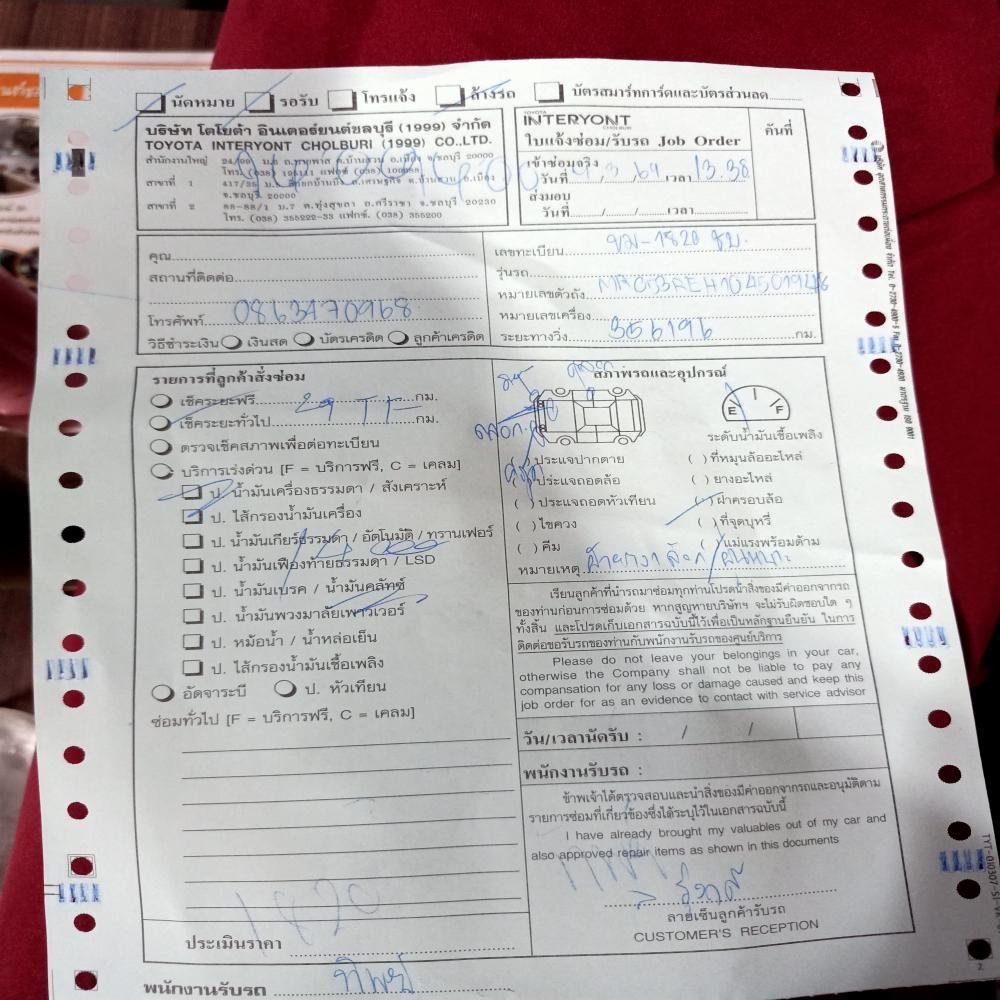 นัดหมาย รอรับ โทรแจ้ง ล้างรถ บัตรสมาร์ทการ์ดและบัตรส่วนลด
บริษัท โตโยต้า อินเตอร์ยนต์ชลบุรี (1999) จำกัด
TOYOTA INTERYONT CHOLBURI (1999) CO.,LTD.
สำนักงานใหญ่
สาขาที่ 1
จ.ชลบุรี 20000
สาขาที่ 2 88-88/1 ม.7 ต.ทุ่งสุขลา อ.ศรีราชา จ.ชลบุรี 20230
โทร. (038) 355222-33 แฟกซ์. (038) 355200
TOYOTA
INTERYONT
CHOLBURI
ใบแจ้งซ่อม/รับรถ Job Order
คันที่
เข้าซ่อมจริง
วันที่ 9, 3, 64 เวลา 13.38
ส่งมอบ
วันที่ / / เวลา
คุณ
สถานที่ติดต่อ
โทรศัพท์ 0863470968
วิธีชำระเงิน เงินสด บัตรเครดิต ลูกค้าเครดิต
เลขทะเบียน ขม-1820 ชบ.
รุ่นรถ
หมายเลขตัวถัง
หมายเลขเครื่อง
ระยะทางวิ่ง 356196 กม.
รายการที่ลูกค้าสั่งซ่อม
เช็คระยะฟรี กม.
เช็คระยะทั่วไป กม.
ตรวจเช็คสภาพเพื่อต่อทะเบียน
บริการเร่งด่วน [F = บริการฟรี, C = เคลม]
ป. น้ำมันเครื่องธรรมดา / สังเคราะห์
ป. ไส้กรองน้ำมันเครื่อง
ป. น้ำมันเกียร์ธรรมดา / อัตโนมัติ / ทรานเฟอร์
ป. น้ำมันเฟืองท้ายธรรมดา / LSD
ป. น้ำมันเบรค / น้ำมันคลัทซ์
ป. น้ำมันพวงมาลัยเพาเวอร์
ป. หม้อน้ำ / น้ำหล่อเย็น
ป. ไส้กรองน้ำมันเชื้อเพลิง
อัดจาระบี ป. หัวเทียน
ซ่อมทั่วไป [F = บริการฟรี, C = เคลม]
1820
ประเมินราคา
พนักงานรับรถ ทิพย์
สภาพรถและอุปกรณ์
E F
ระดับน้ำมันเชื้อเพลิง
( ) ประแจปากตาย ( ) ที่หมุนล้ออะไหล่
( ) ประแจถอดล้อ ( ) ยางอะไหล่
( ) ประแจถอดหัวเทียน ( ) ฝาครอบล้อ
( ) ไขควง ( ) ที่จุดบุหรี่
( ) คีม ( ) แม่แรงพร้อมด้าม
หมายเหตุ
เรียนลูกค้าที่นำรถมาซ่อมทุกท่านโปรดนำสิ่งของมีค่าออกจากรถ
ของท่านก่อนการซ่อมด้วย หากสูญหายบริษัทฯ จะไม่รับผิดชอบใด ๆ
ทั้งสิ้น และโปรดเก็บเอกสารฉบับนี้ไว้เพื่อเป็นหลักฐานยืนยัน ในการ
ติดต่อขอรับรถของท่านกับพนักงานรับรถของศูนย์บริการ
Please do not leave your belongings in your car,
otherwise the Company shall not be liable to pay any
compansation for any loss or damage caused and keep this
job order for as an evidence to contact with service advisor
วัน/เวลานัดรับ : / /
พนักงานรับรถ :
ข้าพเจ้าได้ตรวจสอบและนำสิ่งของมีค่าออกจากรถและอนุมัติตาม
รายการซ่อมที่เกี่ยวข้องซึ่งได้ระบุไว้ในเอกสารฉบับนี้
I have already brought my valuables out of my car and
also approved repair items as shown in this documents
ลายเซ็นลูกค้ารับรถ
CUSTOMER'S RECEPTION